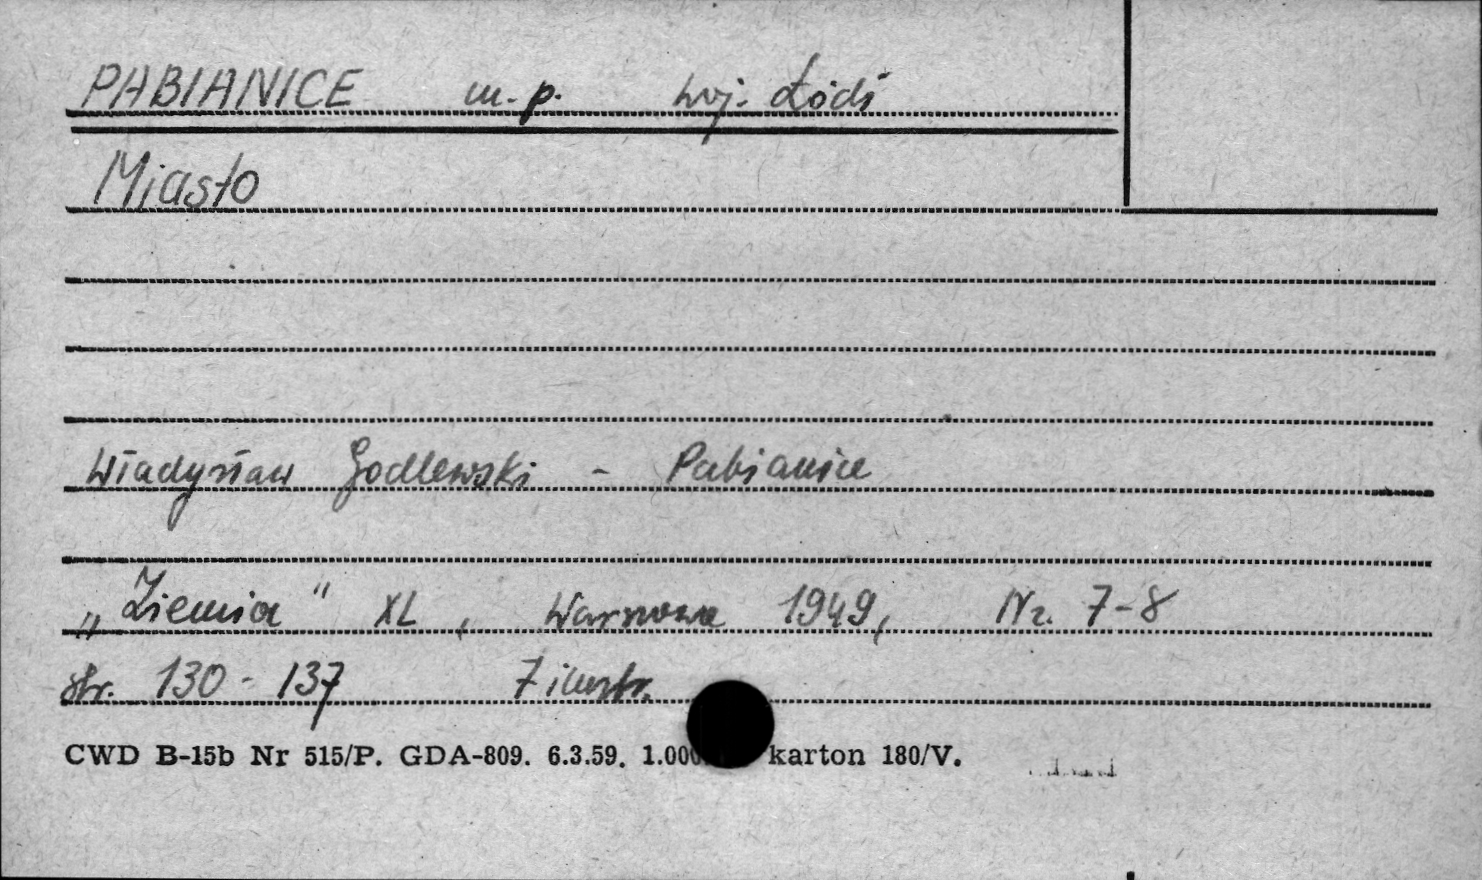 PABIANICE m.p. woj. Łódź
Miasto
Władysław Godlewski - Pabianice
„Ziemia" XL, Warszawa 1949, Nr. 7-8
str. 130-137 7 ilustr.
CWD B-15b Nr 515/P. GDA-809. 6.3.59. karton 180/V.